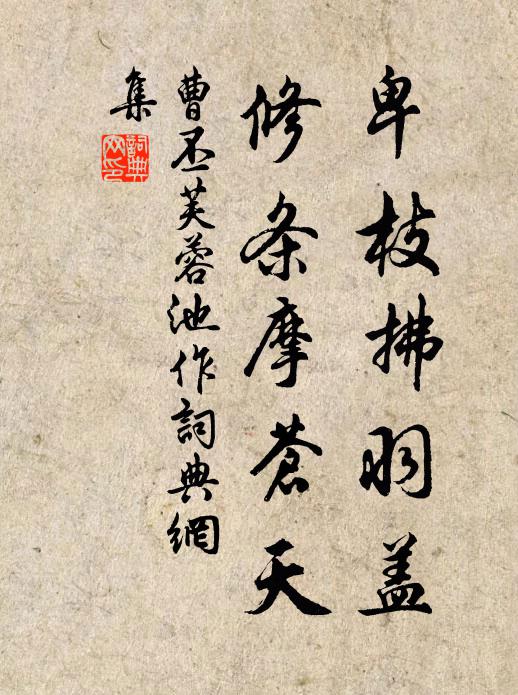 卑枝拂羽盖
修条摩苍天
曹丕芙蓉池作詞典網
集
詞典
网印